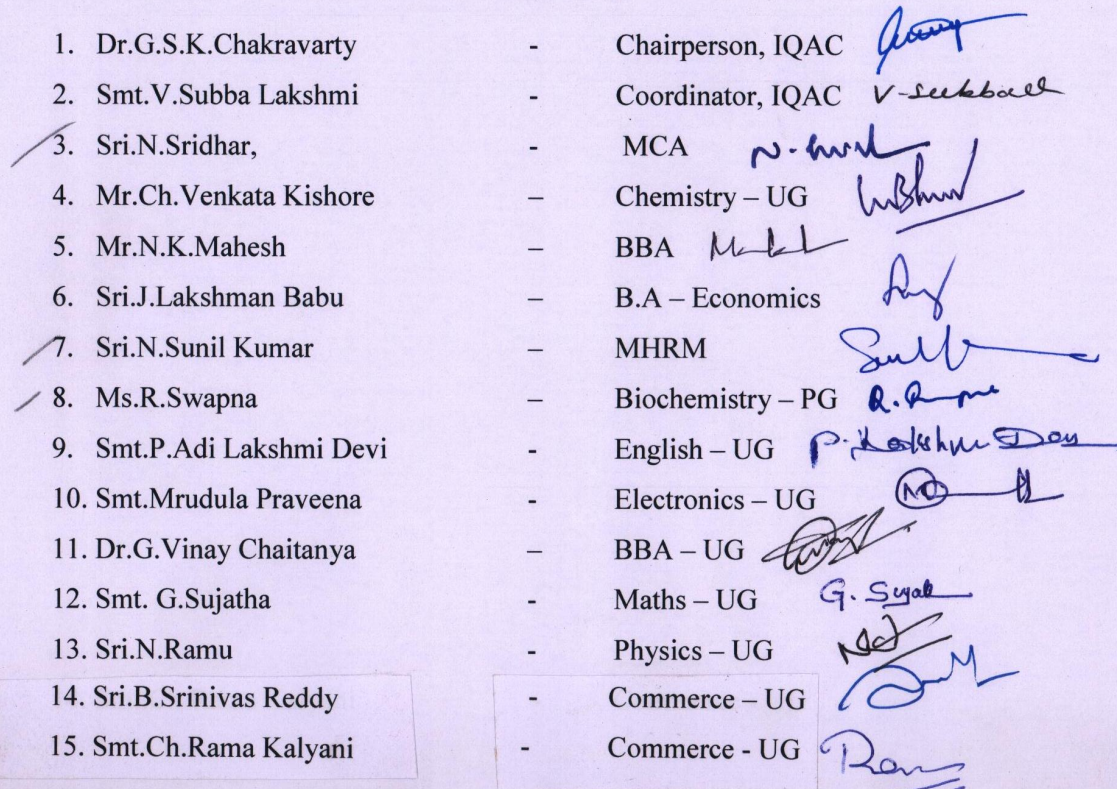 1. Dr.G.S.K.Chakravarty - Chairperson, IQAC
2. Smt.V.Subba Lakshmi - Coordinator, IQAC
3. Sri.N.Sridhar, - MCA
4. Mr.Ch.Venkata Kishore – Chemistry – UG
5. Mr.N.K.Mahesh – BBA
6. Sri.J.Lakshman Babu – B.A – Economics
7. Sri.N.Sunil Kumar – MHRM
8. Ms.R.Swapna – Biochemistry – PG
9. Smt.P.Adi Lakshmi Devi - English – UG
10. Smt.Mrudula Praveena - Electronics – UG
11. Dr.G.Vinay Chaitanya – BBA – UG
12. Smt. G.Sujatha - Maths – UG G.
13. Sri.N.Ramu - Physics – UG
14. Sri.B.Srinivas Reddy - Commerce – UG
15. Smt.Ch.Rama Kalyani - Commerce - UG